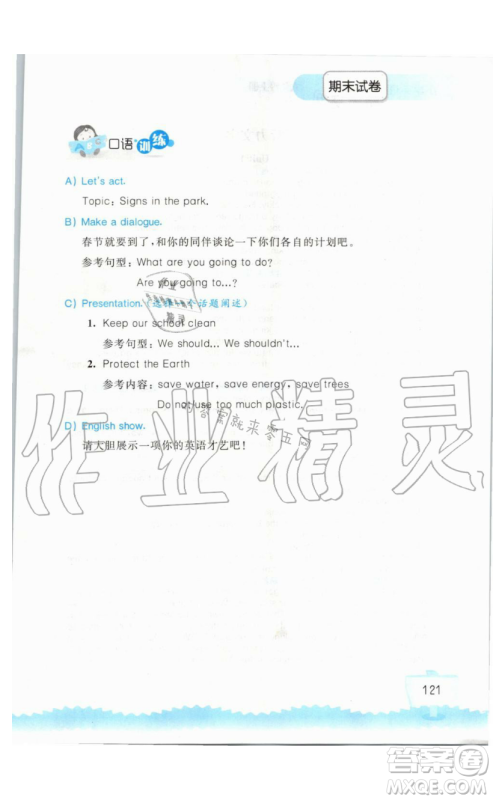 期末试卷
口语训练
A) Let's act.
Topic: Signs in the park.
B) Make a dialogue.
春节就要到了，和你的同伴谈论一下你们各自的计划吧。
参考句型：What are you going to do?
Are you going to...?
C) Presentation.（选择一个话题阐述）
1. Keep our school clean
参考句型：We should... We shouldn't...
2. Protect the Earth
参考内容：save water, save energy, save trees
Do not use too much plastic.
D) English show.
请大胆展示一项你的英语才艺吧！
作业精灵
121
答案圈
MXQE.COM